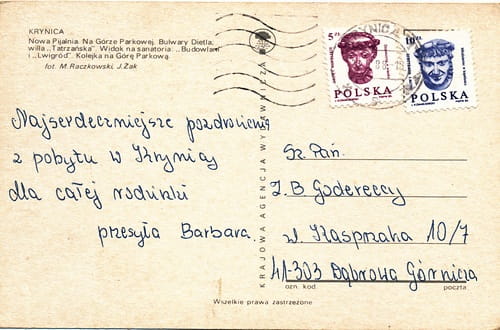 KRYNICA
Nowa Pijalnia. Na Górze Parkowej. Bulwary Dietla,
willa „Tatrzańska". Widok na sanatoria: „Budowlani"
i „Lwigród". Kolejka na Górę Parkową.
fot. M. Raczkowski, J. Żak
Najserdeczniejsze pozdrowienia
z pobytu w Krynicy
dla całej rodzinki
przesyła Barbara.
KRAJOWA AGENCJA WYDAWNICZA
KRYNICA
5 zł
POLSKA
10 zł
POLSKA
Sz. Pań.
I.B Godereccy
ul. Kasprzaka 10/7
41-303 Dąbrowa Górnicza
ozn. kod
poczta
Wszelkie prawa zastrzeżone